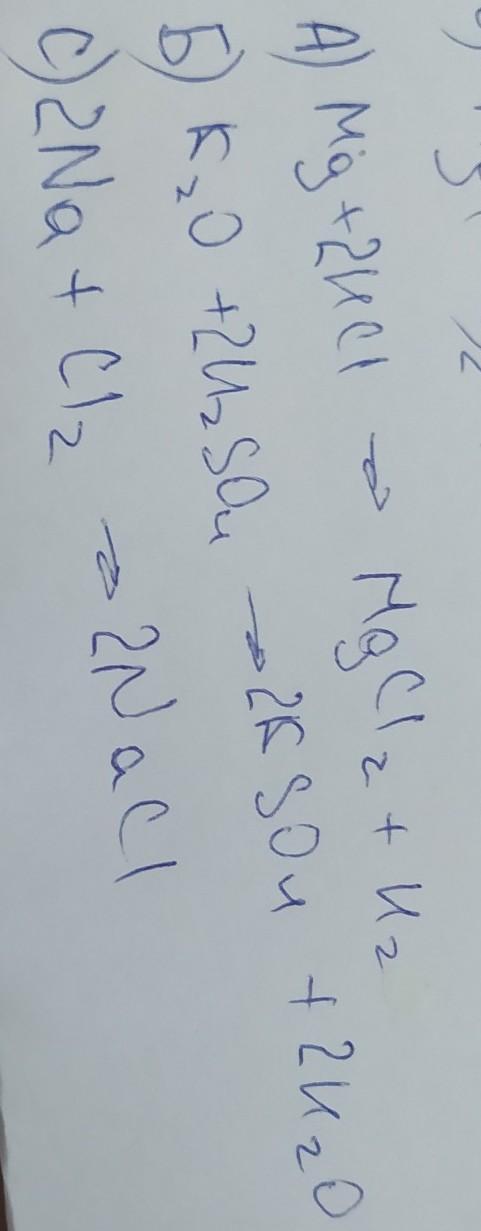 А) Mg + 2HCl → MgCl₂ + H₂
Б) K₂O + 2H₂SO₄ → 2KSO₄ + 2H₂O
С) 2Na + Cl₂ → 2NaCl